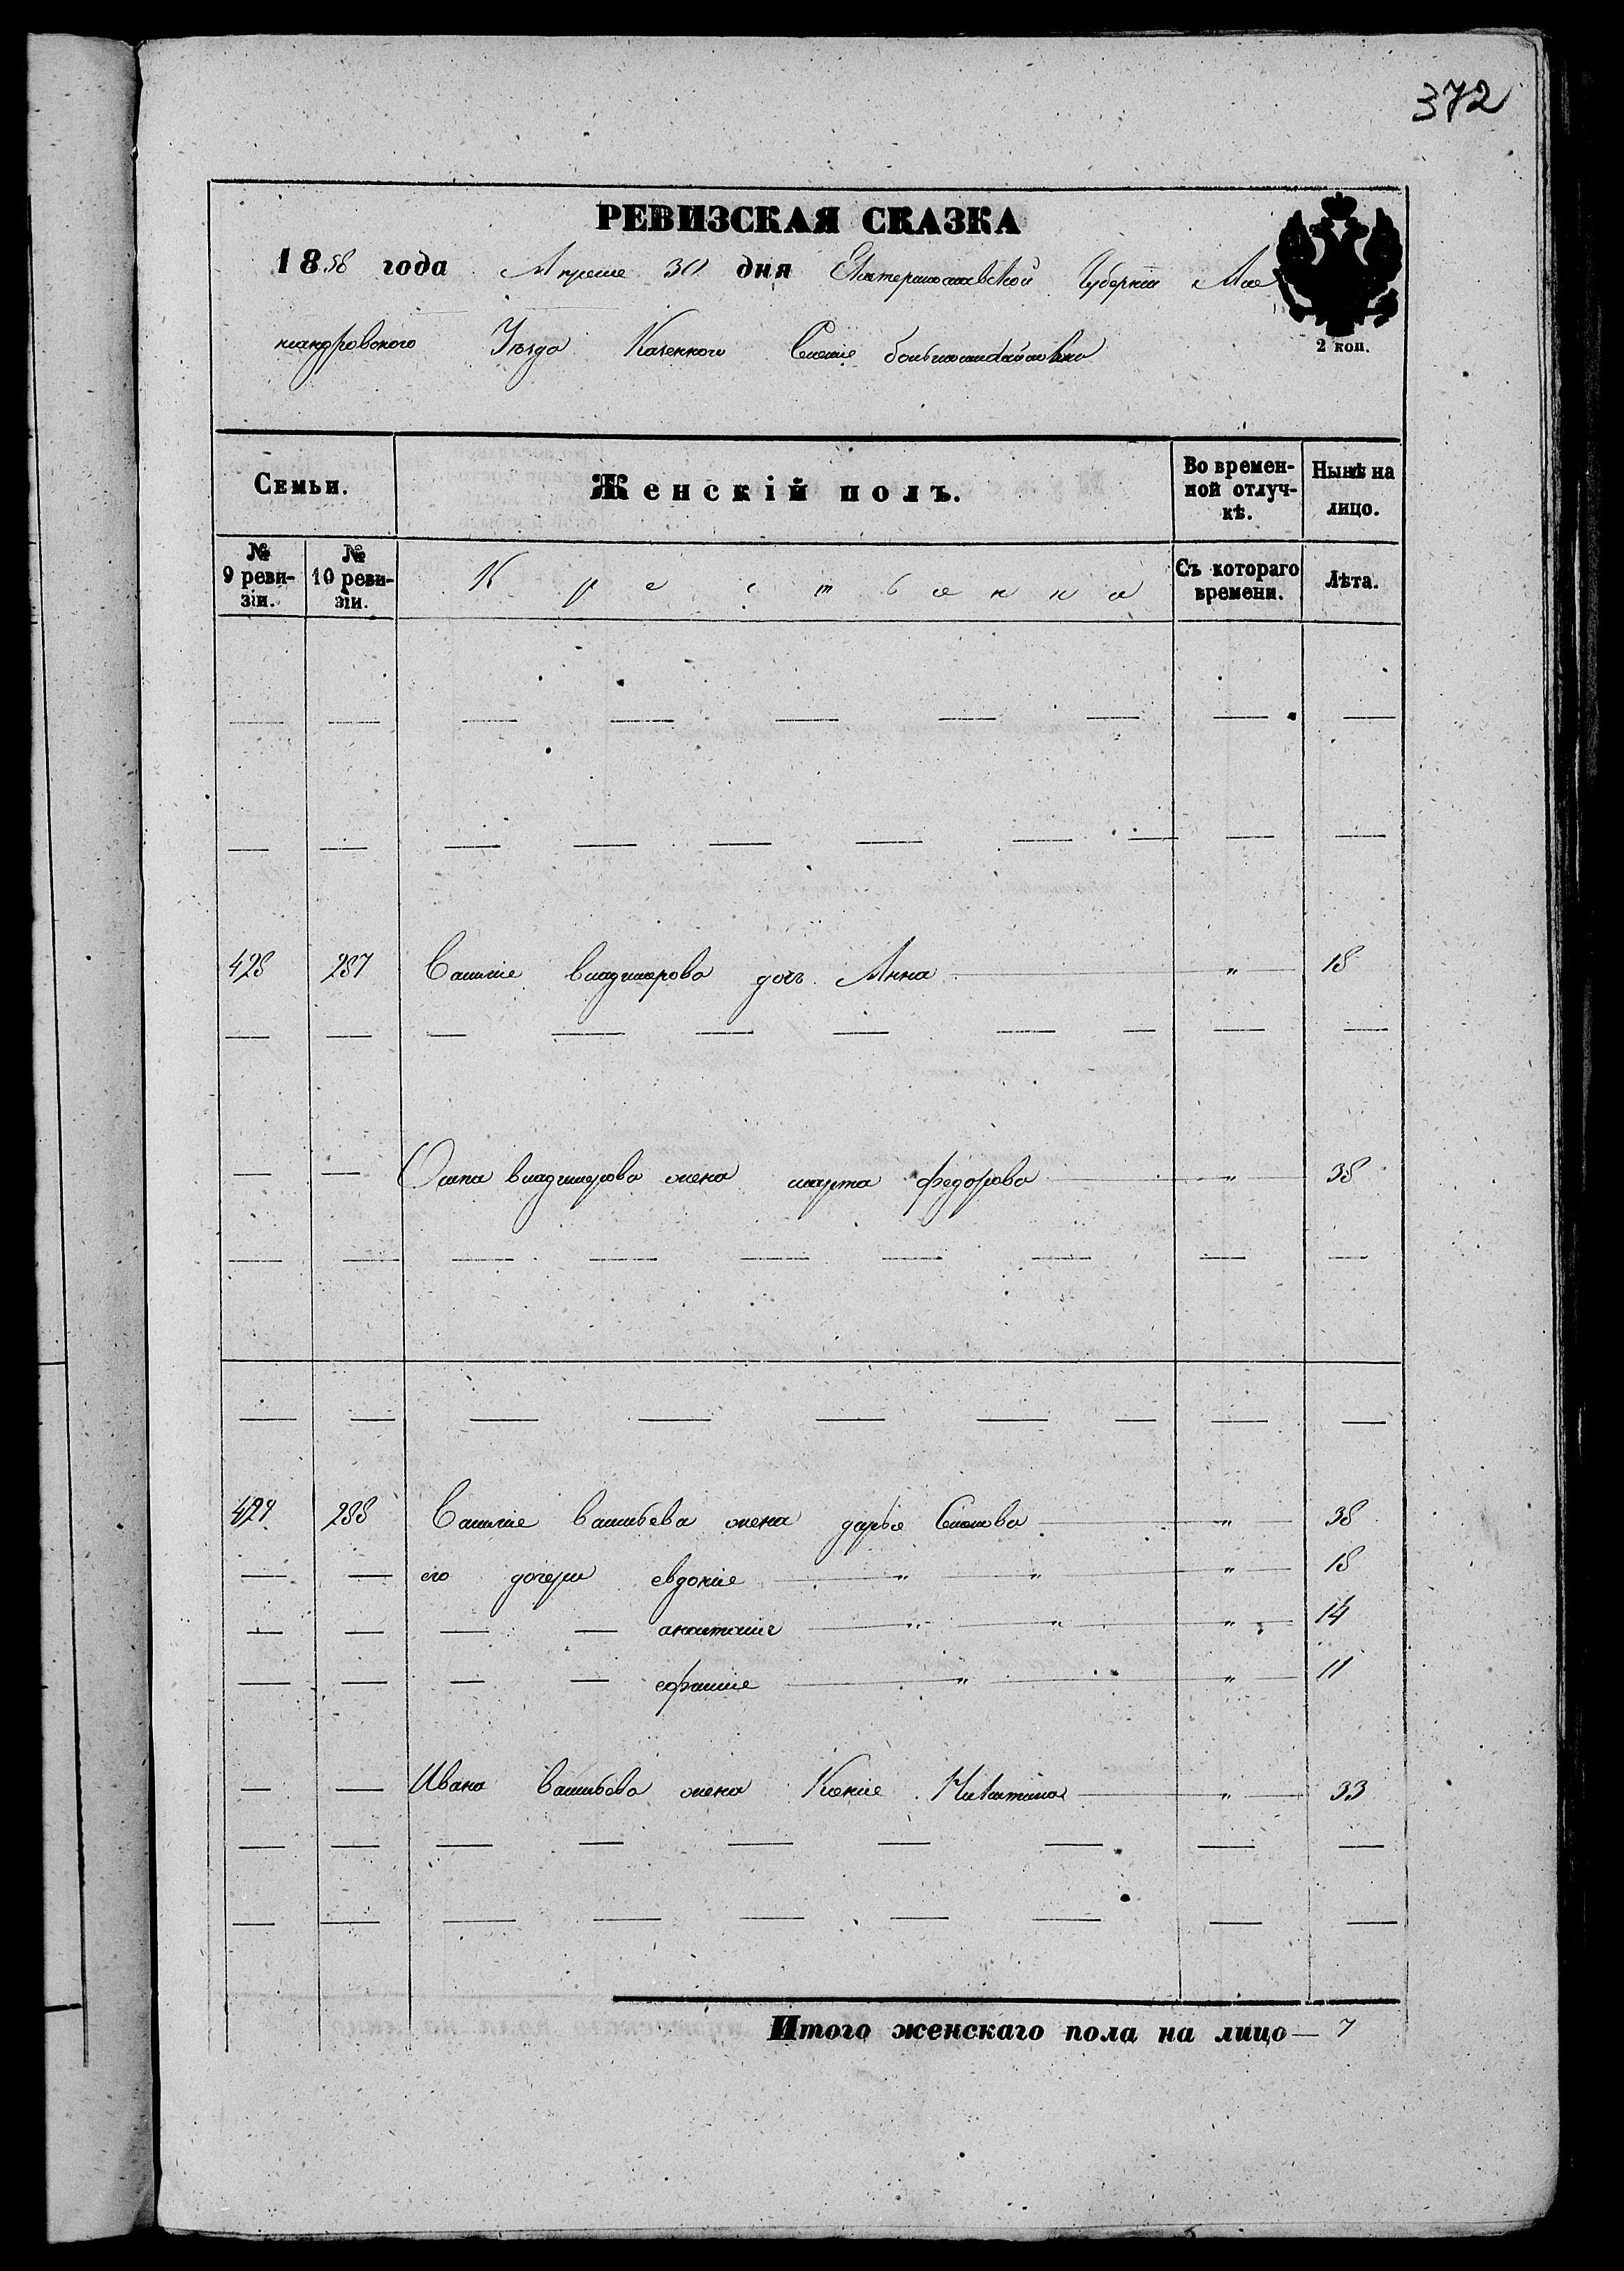 372
РЕВИЗСКАЯ СКАЗКА
1858 года Апреля 30 дня Екатеринославской Губернии Але
ксандровского Уезда Казенного Селение большомихайловка
2 коп.
Семьи. Женскій полъ. Во времен- Нынѣ на
ной отлуч- лицо.
кѣ.
№ 9 реви- зіи. № 10 реви- зіи. Крестьянка Съ котораго времени. Лѣта.
428 287 Василие владимерова дочь Анна " 18
— — Осипа владимерова жена марта федорова " 38
429 288 Василие васильева жена дарье Семенова " 38
— — его дочери евдокие " " " 18
— — — — анастасие " " " 14
— — — — ефимие " " 11
— — Ивана васильева жена Ксение Никитина " 33
Итого женскаго пола на лицо — 7